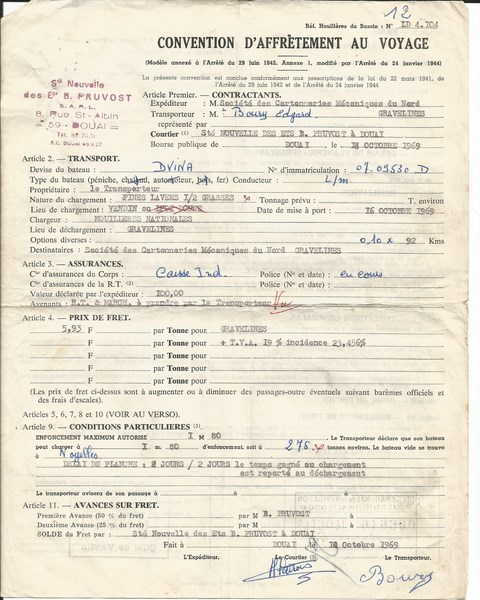 12
Réf. Houillères du Bassin : N° LD 4.104
CONVENTION D'AFFRÈTEMENT AU VOYAGE
(Modèle annexé à l'Arrêté du 29 juin 1942. Annexe 1, modifié par l'Arrêté du 24 janvier 1944)
La présente convention est conclue conformément aux prescriptions de la loi du 22 mars 1941, de
l'Arrêté du 29 juin 1942 et de l'Arrêté du 24 janvier 1944
Sté Nouvelle
des Ets B. PRUVOST
S.A.R.L.
8, Rue St-Albin
59 - DOUAI
Article Premier. - CONTRACTANTS.
Expéditeur : M. Société des Cartonneries Mécaniques du Nord
Transporteur : M. Boury Edgard. GRAVELINES
représenté par
Courtier (1) Sté NOUVELLE DES ETS B. PRUVOST à DOUAI
Bourse publique de DOUAI le 14 OCTOBRE 1969
Article 2. - TRANSPORT.
Devise du bateau : DVINA N° d'immatriculation : 07.09530 D
Type du bateau (péniche, chaland, automoteur, bois, fer) Conducteur : L/m
Propriétaire : le Transporteur
Nature du chargement : FINES LAVEES 1/2 GRASSES Tonnage prévu : T. environ
Lieu de chargement : VENDIN ou Date de mise à port : 16 OCTOBRE 1969
Chargeur : HOUILLERES NATIONALES
Lieu de déchargement : GRAVELINES
Options diverses : 0,10 x 92 Kms
Destinataires : Société des Cartonneries Mécaniques du Nord GRAVELINES
Article 3. - ASSURANCES.
Cie d'assurances du Corps : Caisse Ind. Police (N° et date) : en cours
Cie d'assurances de la R.T. (2) Police (N° et date) :
Valeur déclarée par l'expéditeur : 100,00
Avenants : R.T. & MARCH. à prendre par le Transporteur
Article 4. - PRIX DE FRET.
5,93 F par Tonne pour GRAVELINES
F par Tonne pour + T.V.A. 19 % incidence 23,456%
F par Tonne pour
F par Tonne pour
F par Tonne pour
(Les prix de fret ci-dessus sont à augmenter ou à diminuer des passages-outre éventuels suivant barèmes officiels et
des frais d'escales).
Articles 5, 6, 7, 8 et 10 (VOIR AU VERSO).
Article 9. - CONDITIONS PARTICULIERES (3).
ENFONCEMENT MAXIMUM AUTORISE I M 80 Le Transporteur déclare que son bateau
peut charger à I m. 80 d'enfoncement, soit à 275 tonnes environ. Le bateau vide se trouve
à Noyelles
DELAI DE PLANCHE : 2 JOURS / 2 JOURS le temps gagné au chargement
est reporté au déchargement
Le transporteur avisera de son passage à
Article 11. - AVANCES SUR FRET.
Première Avance (50 % du fret) par M B. PRUVOST
Deuxième Avance (25 % du fret) par M
SOLDE du Fret par : Sté Nouvelle des Ets B. PRUVOST à DOUAI
Fait à DOUAI le 14 Octobre 1969
L'Expéditeur. Le Courtier (1) Le Transporteur.
Boury